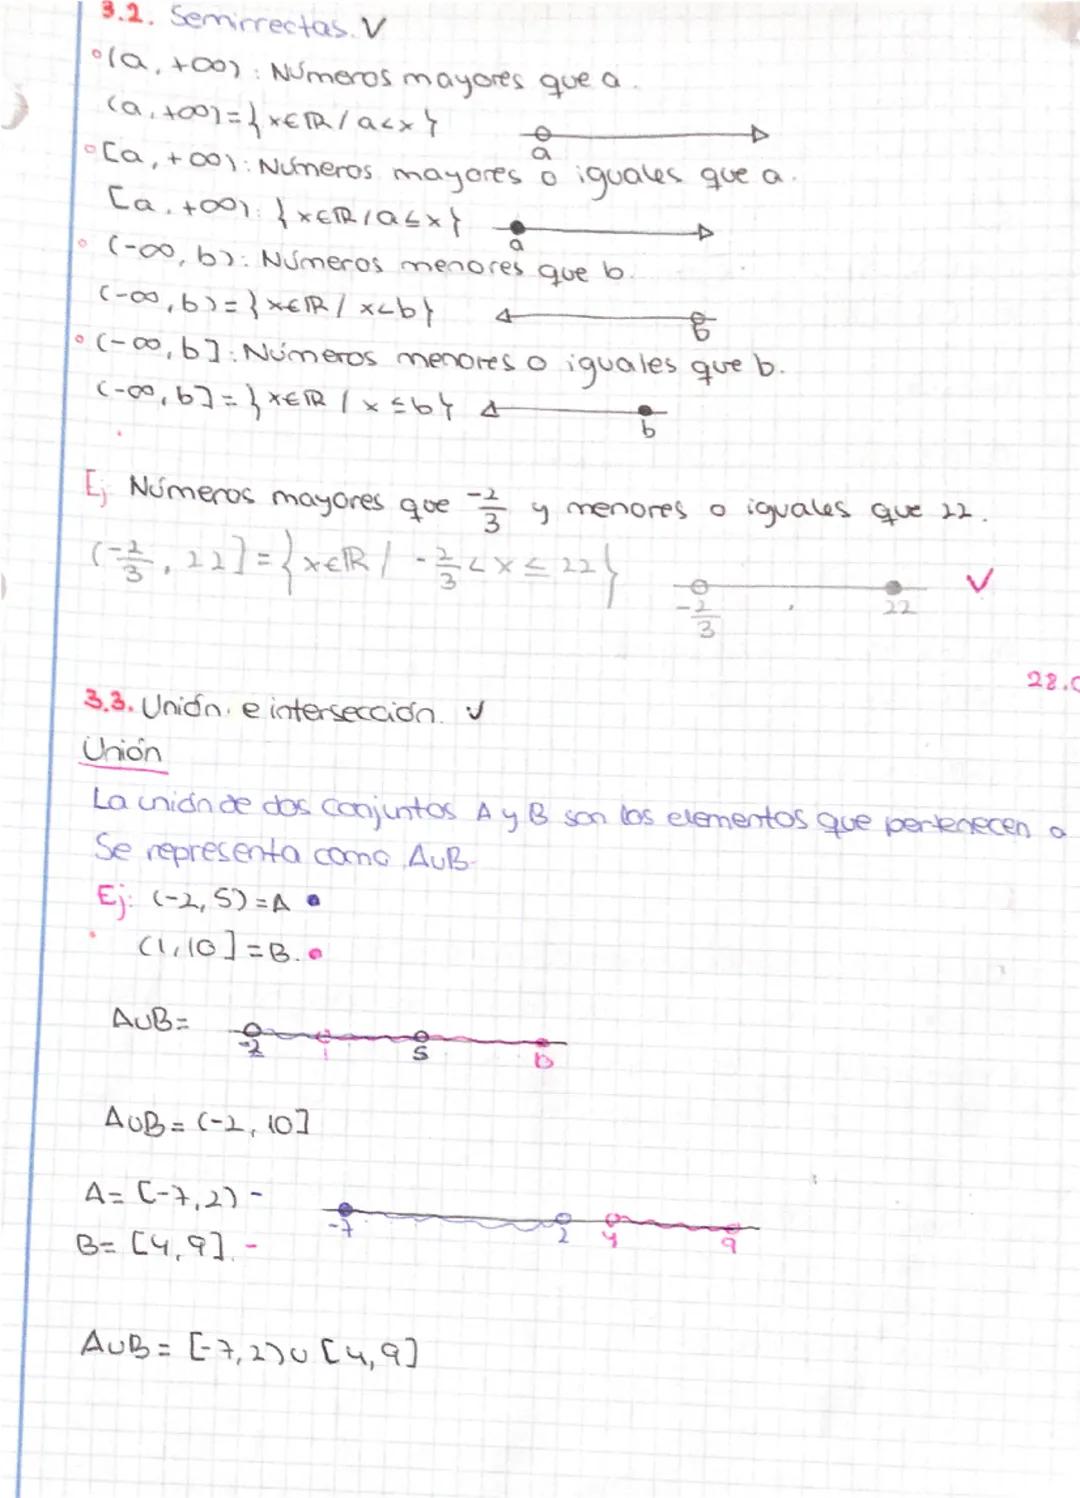 3.2. Semirrectas. V
(a, +∞): Números mayores que a.
(a, +∞) = {x∈ℝ / a<x}
a
[a, +∞): Números mayores o iguales que a.
[a, +∞): {x∈ℝ / a≤x}
a
(-∞, b): Números menores que b.
(-∞, b) = {x∈ℝ / x<b}
b
(-∞, b]: Números menores o iguales que b.
(-∞, b] = {x∈ℝ / x≤b}
b
Ej Números mayores que -2/3 y menores o iguales que 22.
(-2/3, 22] = {x∈ℝ / -2/3 < x ≤ 22}
-2/3 22
28.
3.3. Unión e intersección. √
Unión
La unión de dos conjuntos A y B son los elementos que pertenecen a
Se representa como A∪B.
Ej: (-2, 5) = A
(1, 10] = B.
A∪B=
-2 1 5 10
A∪B = (-2, 10]
A = [-7, 2) -
B = [4, 9]. -
-7 2 4 9
A∪B = [-7, 2) ∪ [4, 9]